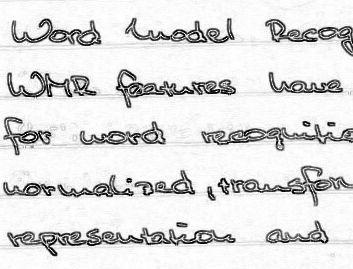 Word model Recog
WMR features have
for word recognitio
normalized, transfor
representation and